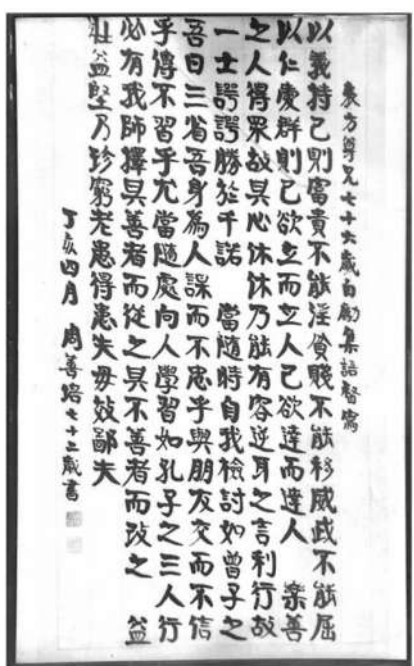 表方尊兄七十六歲自勵集語督寫
以義持己則富貴不能淫貧賤不能移威武不能屈
以仁處群則己欲立而立人己欲達而達人 樂善
之人得眾故其心休休乃能有容逆耳之言利行故
一士諤諤勝於千諾 當隨時自我檢討如曾子之
吾日三省吾身為人謀而不忠乎與朋友交而不信
乎傳不習乎尤當隨處向人學習如孔子之三人行
必有我師擇其善者而從之其不善者而改之 益
壯益堅乃珍窮老患得患失毋效鄙夫
丁亥四月 周善培七十二歲書